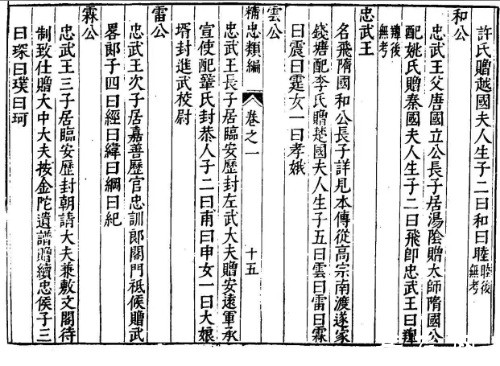 許氏贈越國夫人生子二曰和曰睦睦後無考
和公
忠武王父唐國立公長子居湯陰贈大師隋國公
配姚氏贈秦國夫人生子二曰飛即忠武王曰䎘
後無考
忠武王
名飛隋國和公長子詳見本傳從高宗南渡遂家
錢塘配李氏贈楚國夫人生子五曰雲曰雷曰霖
曰震曰霆女一曰孝娥
雲公
精忠類編
卷之一
十五
忠武王長子居臨安歷封左武大夫贈安遠軍承
宣使配鞏氏封恭人子二曰甫曰申女一曰大娘
壻封進武校尉
雷公
忠武王次子居嘉善歷官忠訓郎閣門祗候贈武
畧郎子四曰經曰緯曰綱曰紀
霖公
忠武王三子居臨安歷封朝請大夫兼敷文閣待
制致仕贈大中大夫按金陀遺譜贈續忠侯子三
曰琛曰璞曰珂